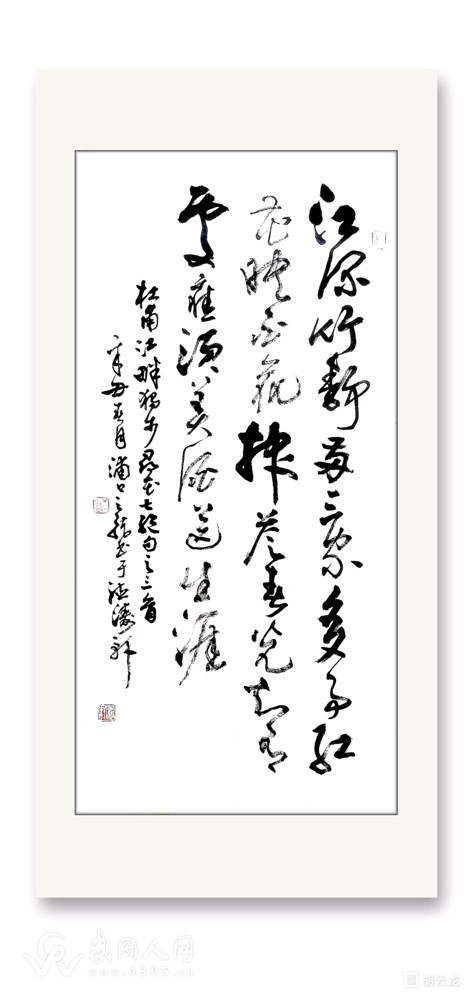 江深竹静两三家多事红
花映白花报答春光知有
處應须美酒送生涯
杜甫江畔独步寻花七绝句之三首
辛丑春月浦口之书于涛轩
武冈人网
www.4305.cn
胡云龙